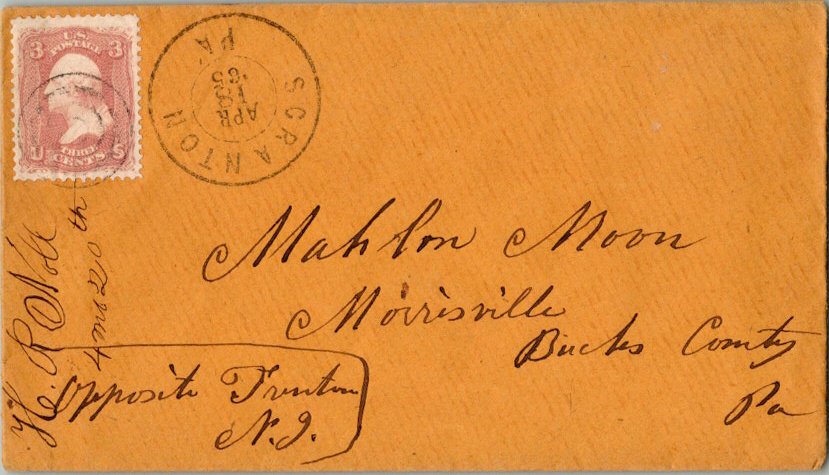 3 U.S. POSTAGE 3
U THREE CENTS S
SCRANTON PA
APR
Mahlon Moon
Morrisville
Bucks County
Pa
Opposite Trenton
N.J.
H. R. Noll
4 mo 20th